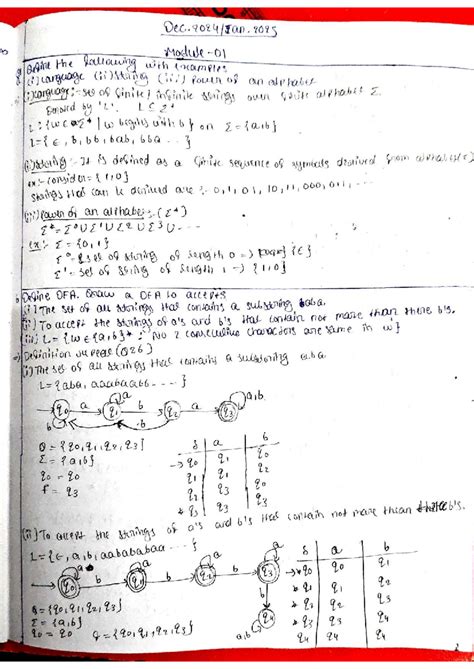 Dec.2024/Jan.2025
Module-01
a Define the following with examples
(i) Language (ii) String (iii) Power of an alphabet
(i) Language :- set of finite / infinite strings over finite alphabet Σ.
Denoted by 'L'. L ⊆ Σ*
L = {w ∈ Σ* | w begins with b} on Σ = {a,b}
L = {ε, b, bb, bab, bba ...}
(ii) String :- It is defined as a finite sequence of symbols derived from alphabet(Σ)
ex:- consider = {1,0}
strings that can be derived are :- 0, 1, 01, 10, 11, 000, 011, ...
(iii) Power of an alphabet :- (Σ*)
Σ* = Σ⁰ ∪ Σ¹ ∪ Σ² ∪ Σ³ ∪ ...
Ex:- Σ = {0,1}
Σ⁰ = set of string of length 0 → {ε}
Σ¹ - set of string of length 1 → {1,0}
b Define DFA. Draw a DFA to accepts
(i) The set of all strings that contains a substring aba.
(ii) To accept the strings of a's and b's that contain not more than three b's.
(iii) L = {w ∈ {a,b}* : No 2 consecutive characters are same in w}
→ Definition
(i) The set of all strings that contains a substring aba
L = {aba, aaabaabb ....}
q0 a q1 a b q2 a q3 a,b
b b
Q = {q0, q1, q2, q3}
Σ = {a,b}
q0 = q0
F = q3
δ a b
→ q0 q1 q0
q1 q1 q2
q2 q3
* q3 q3 q3
(ii) To accept the strings of a's and b's that contain not more than three b's.
L = {ε, a, b, aabababaa ...}
q0 a b q1 a b q2 a b q3 a
b
q4 a,b
Q = {q0, q1, q2, q3}
Σ = {a,b}
q0 = q0 {q0, q1, q2, q3}
δ a b
→ * q0 q0 q1
* q1 q1 q2
* q2 q2 q3
* q3 q3 q4
q4 q4 q4